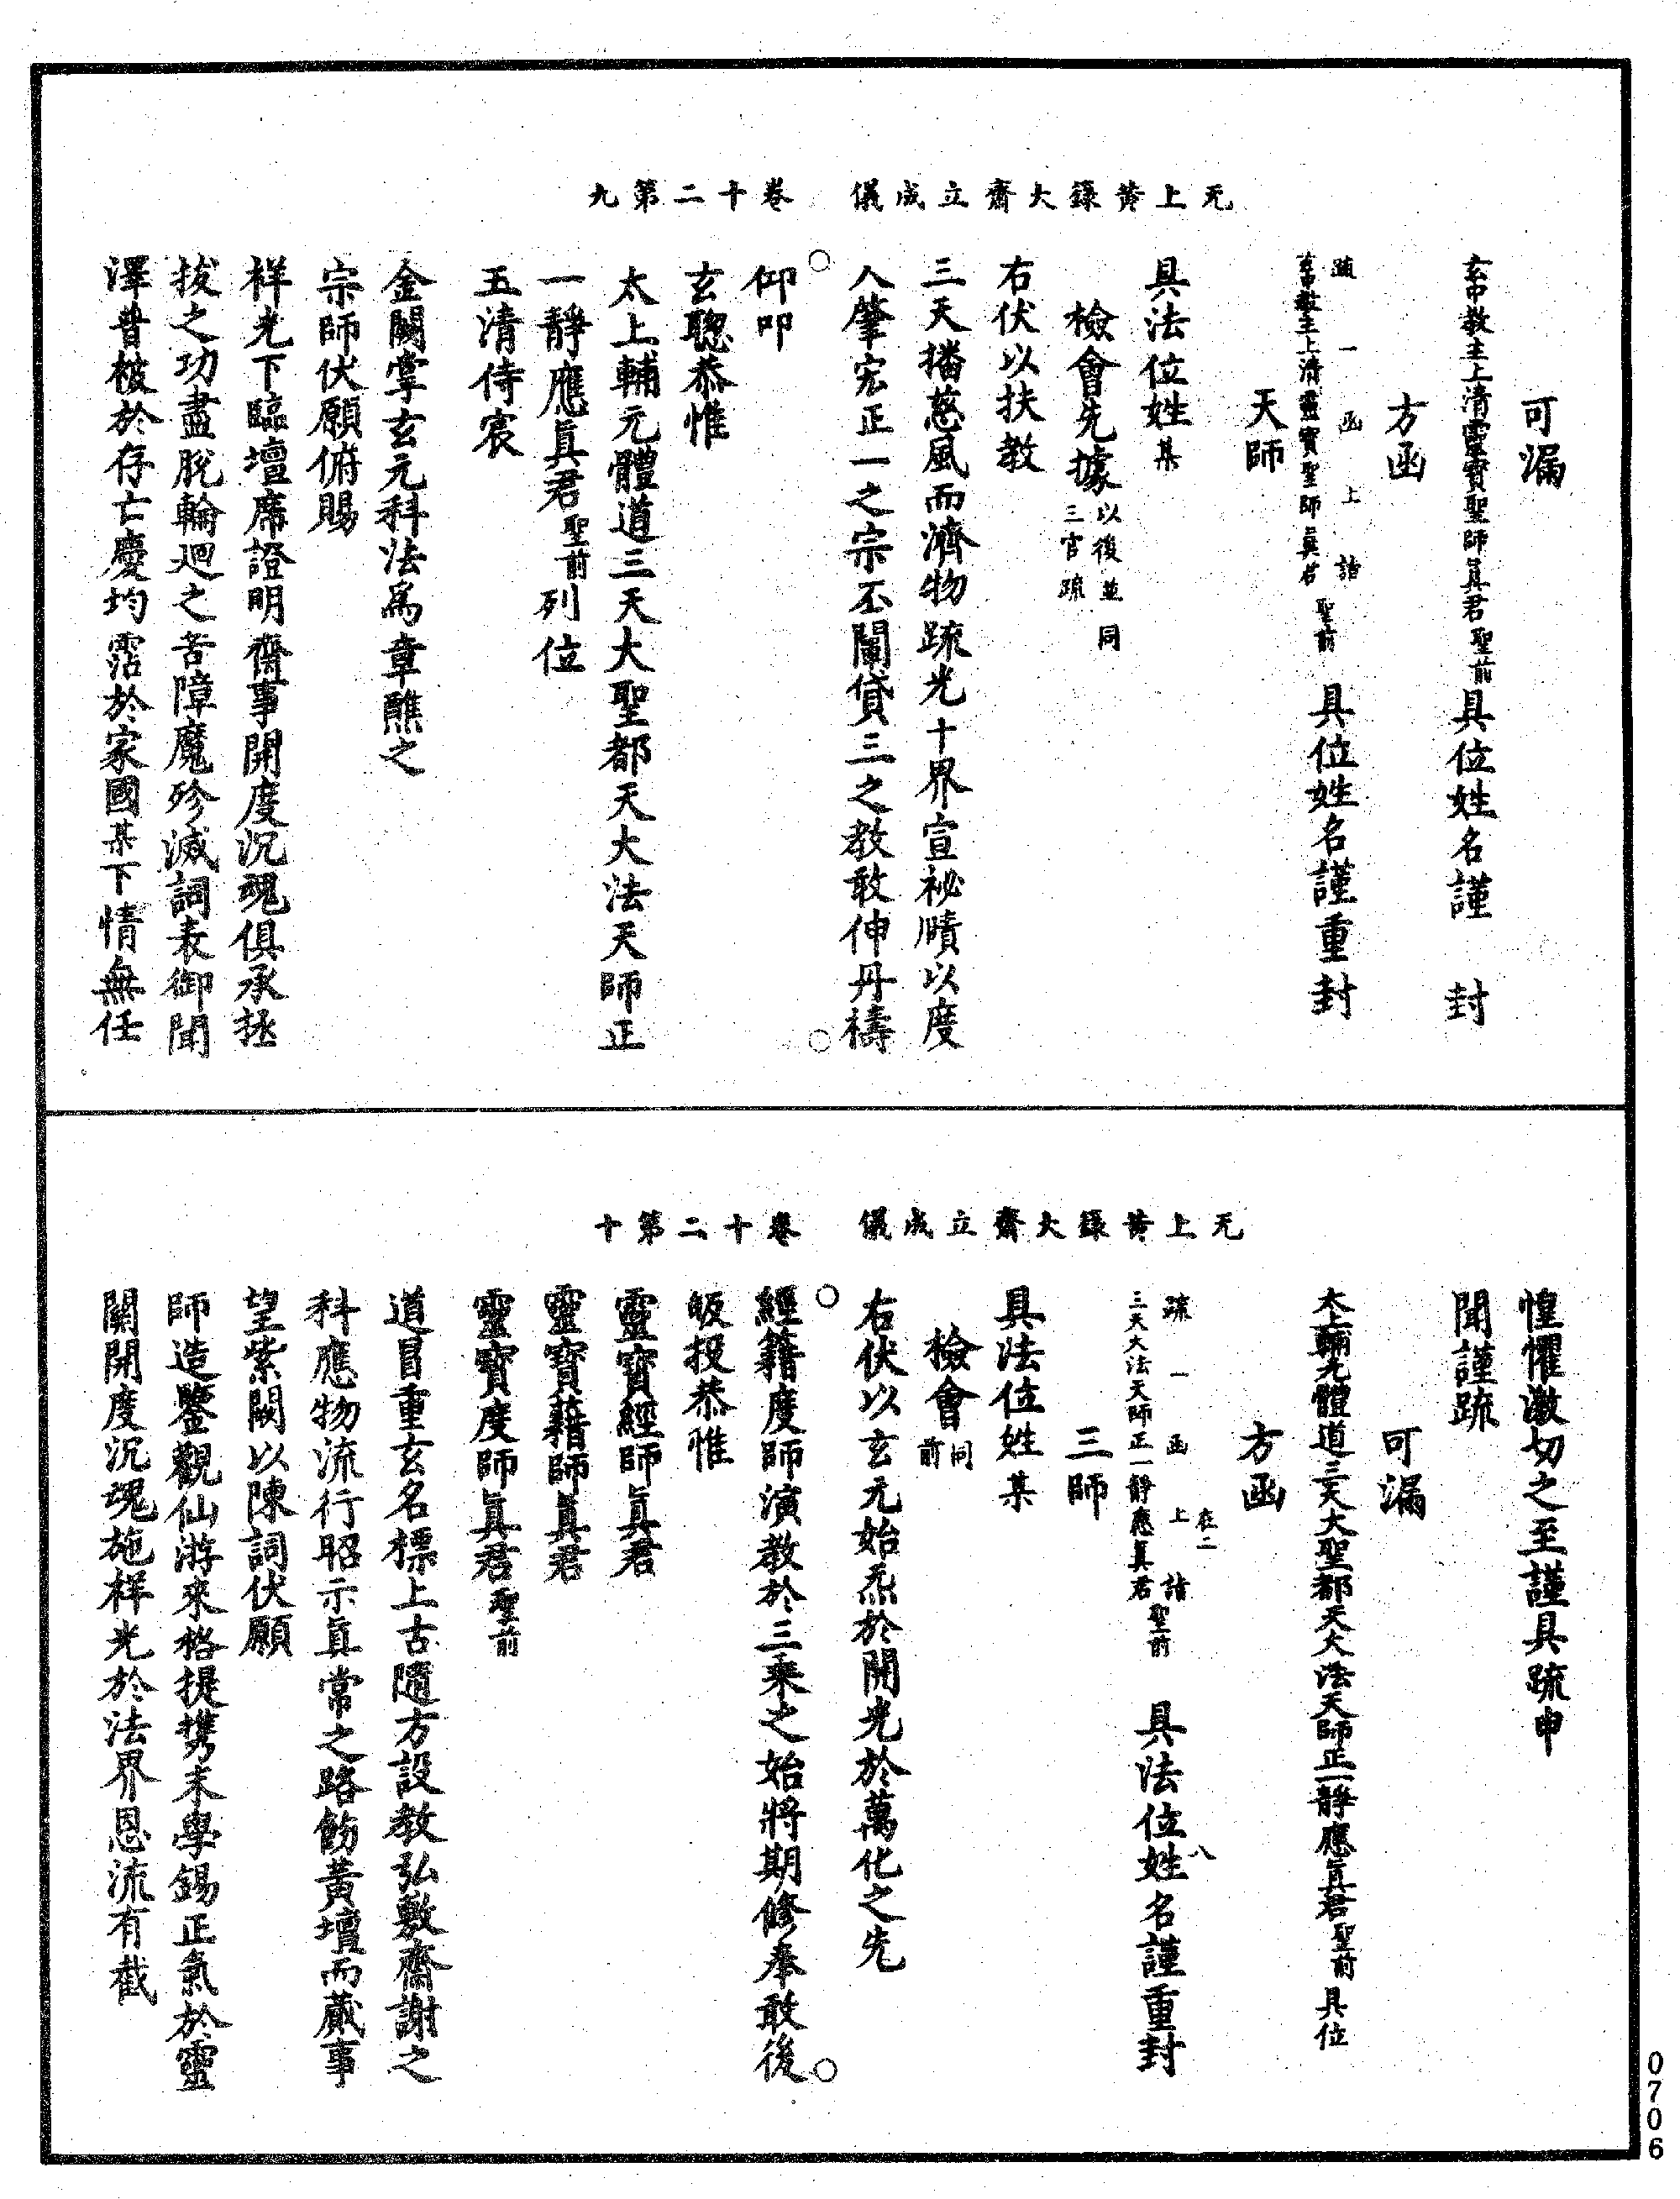 无上黃籙大齋立成儀　卷十二第九
可漏
玄中教主上清靈寶聖師眞君聖前具位姓名謹　封
方函
疏一函上　詣
玄中教主上清靈寶聖師眞君　聖前　具位姓名謹重封
天師
具法位姓某
檢會先據以後並同三官疏
右伏以扶教
三天播慈風而濟物疏光十界宣祕賾以度
人肇宏正一之宗丕闡貸三之教敢伸丹禱
仰叩
玄聰恭惟
太上輔元體道三天大聖都天大法天師正
一靜應眞君聖前列位
五清侍宸
金闕掌玄元科法爲章醮之
宗師伏願俯賜
祥光下臨壇席證明齋事開度沉魂俱承拯
拔之功盡脫輪迴之苦障魔殄滅詞表御聞
澤普被於存亡慶均霑於家國某下情無任
无上黃籙大齋立成儀　卷十二第十
惶懼激切之至謹具疏申
聞謹疏
可漏
太上輔元體道三天大聖都天大法天師正一靜應眞君聖前具位
方函
在二　八
疏一函上　詣
三天大法天師正一靜應眞君聖前　具法位姓名謹重封
三師
具法位姓某
檢會同前
右伏以玄元始炁於開光於萬化之先
經籍度師演教於三乘之始將期修奉敢後
皈投恭惟
靈寶經師眞君
靈寶籍師眞君
靈寶度師眞君聖前
道冒重玄名標上古隨方設教弘敷齋謝之
科應物流行昭示眞常之路飭黃壇而蕆事
望紫闕以陳詞伏願
師造鑒觀仙游來格提携末學錫正氣於靈
關開度沉魂施祥光於法界恩流有截
0706